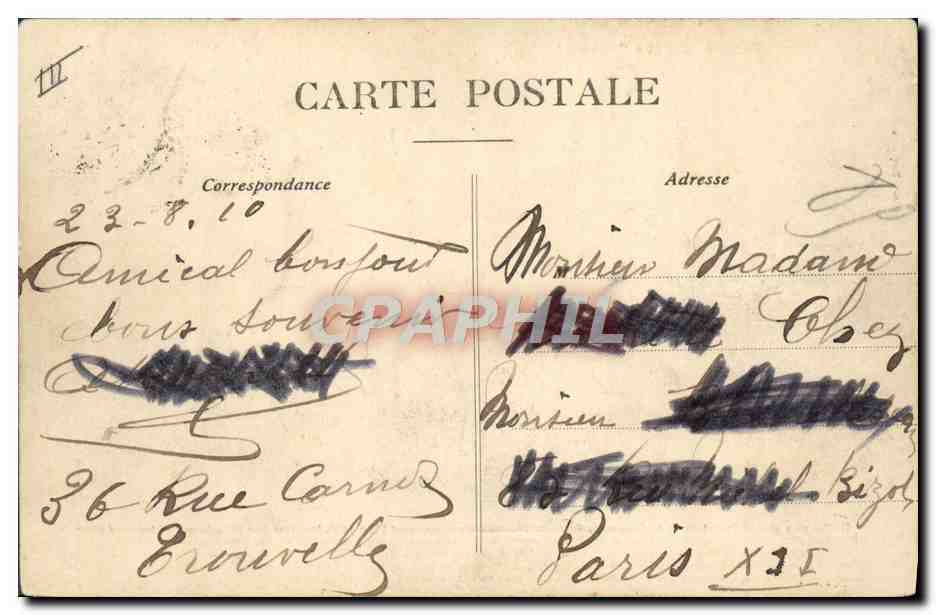 III
CARTE POSTALE
Correspondance
23-8.10
Amical bonjour
bons souvenir
36 Rue Carnot
Trouville
Adresse
Monsieur Madame
Chez
Monsieur
Bizot
Paris XII
CPAPHIL